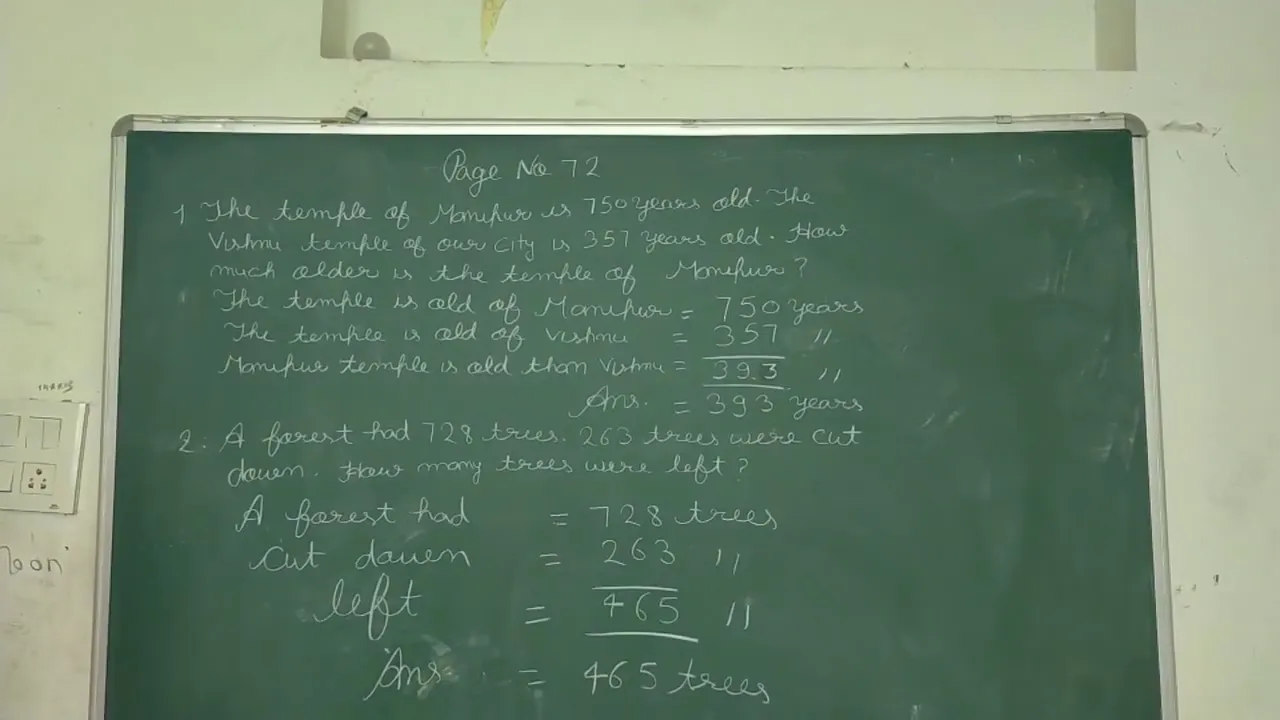 Page No 72
1 The temple of Manipur is 750 years old. The
Vishnu temple of our city is 357 years old. How
much older is the temple of Manipur?
The temple is old of Manipur = 750 years
The temple is old of Vishnu = 357 "
Manipur temple is old than Vishnu = 393 "
Ans. = 393 years
2. A forest had 728 trees. 263 trees were cut
down. How many trees were left?
A forest had = 728 trees
cut down = 263 "
left = 465 "
Ans = 465 trees
noon